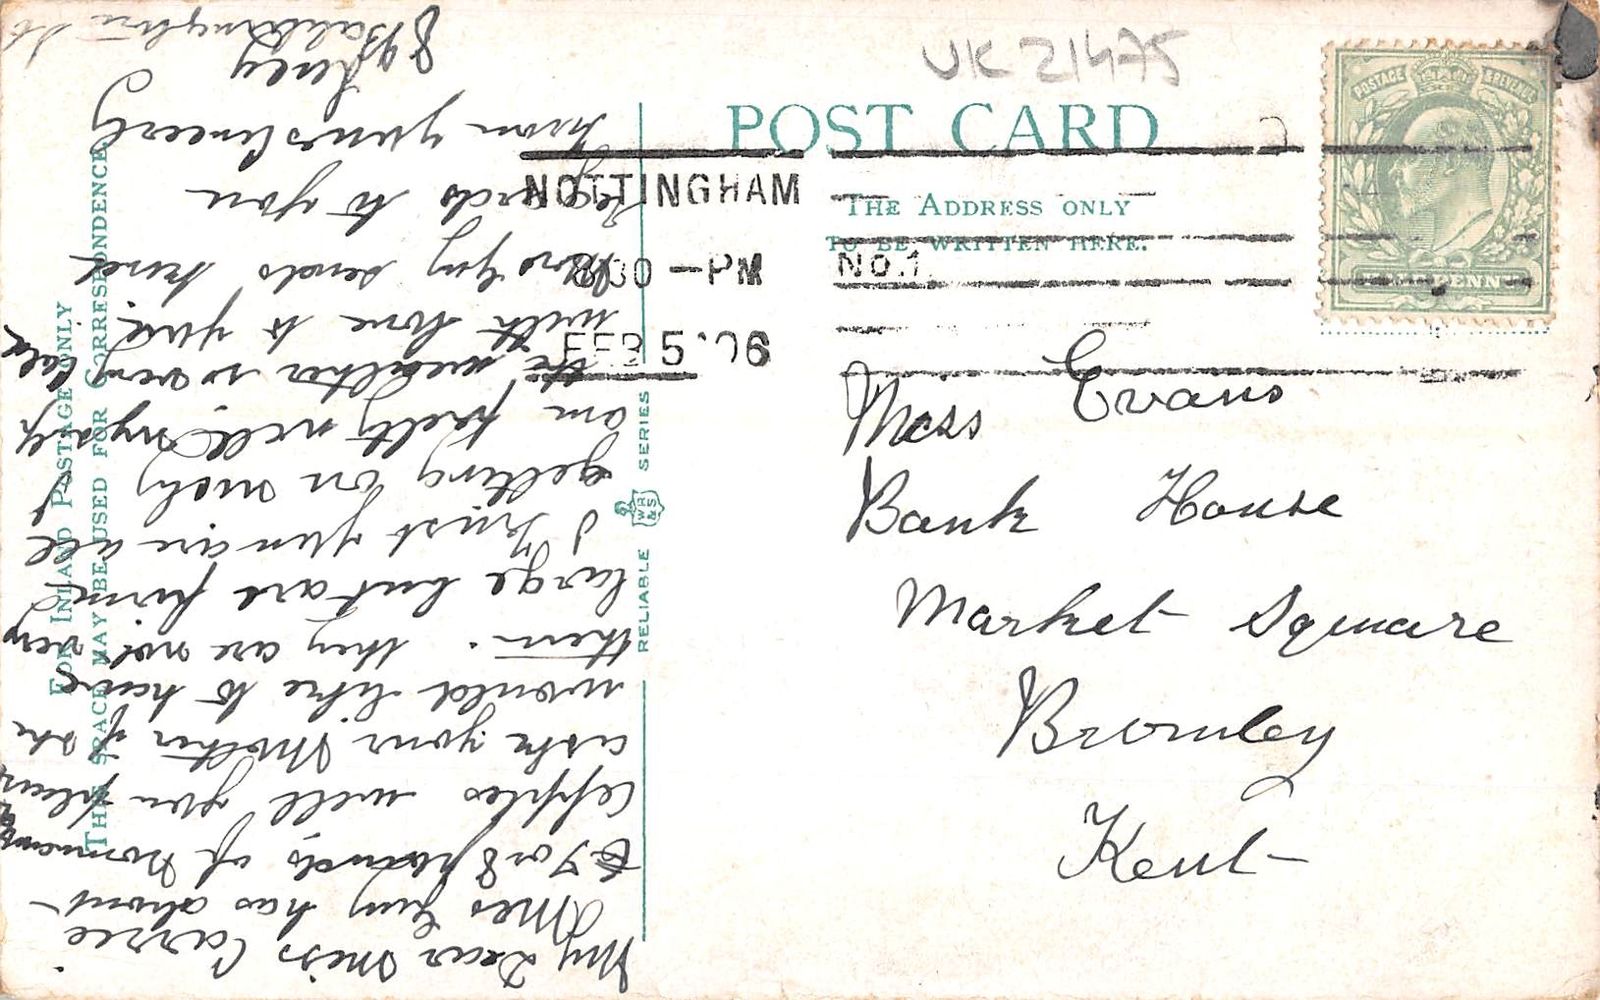 UK 21475
POST CARD
THE ADDRESS ONLY
TO BE WRITTEN HERE.
NOTTINGHAM
8 30 - PM
FEB 5 '06
No. 1
POSTAGE & REVENUE
Miss Evans
Bank House
Market Square
Bromley
Kent
FOR INLAND POSTAGE ONLY
THIS SPACE MAY BE USED FOR CORRESPONDENCE.
RELIABLE WR&S SERIES
My Dear Miss Carrie
Mrs Guy has about
6 7 or 8 pounds of
apples will you please
ask your Mother if she
would like to have
them. they are not very
large but are firm
I trust you are all
getting on nicely I
am pretty well myself
the weather is very cold
with love to you
Mrs Guy sends kind
regards to you
from yours sincerely
89